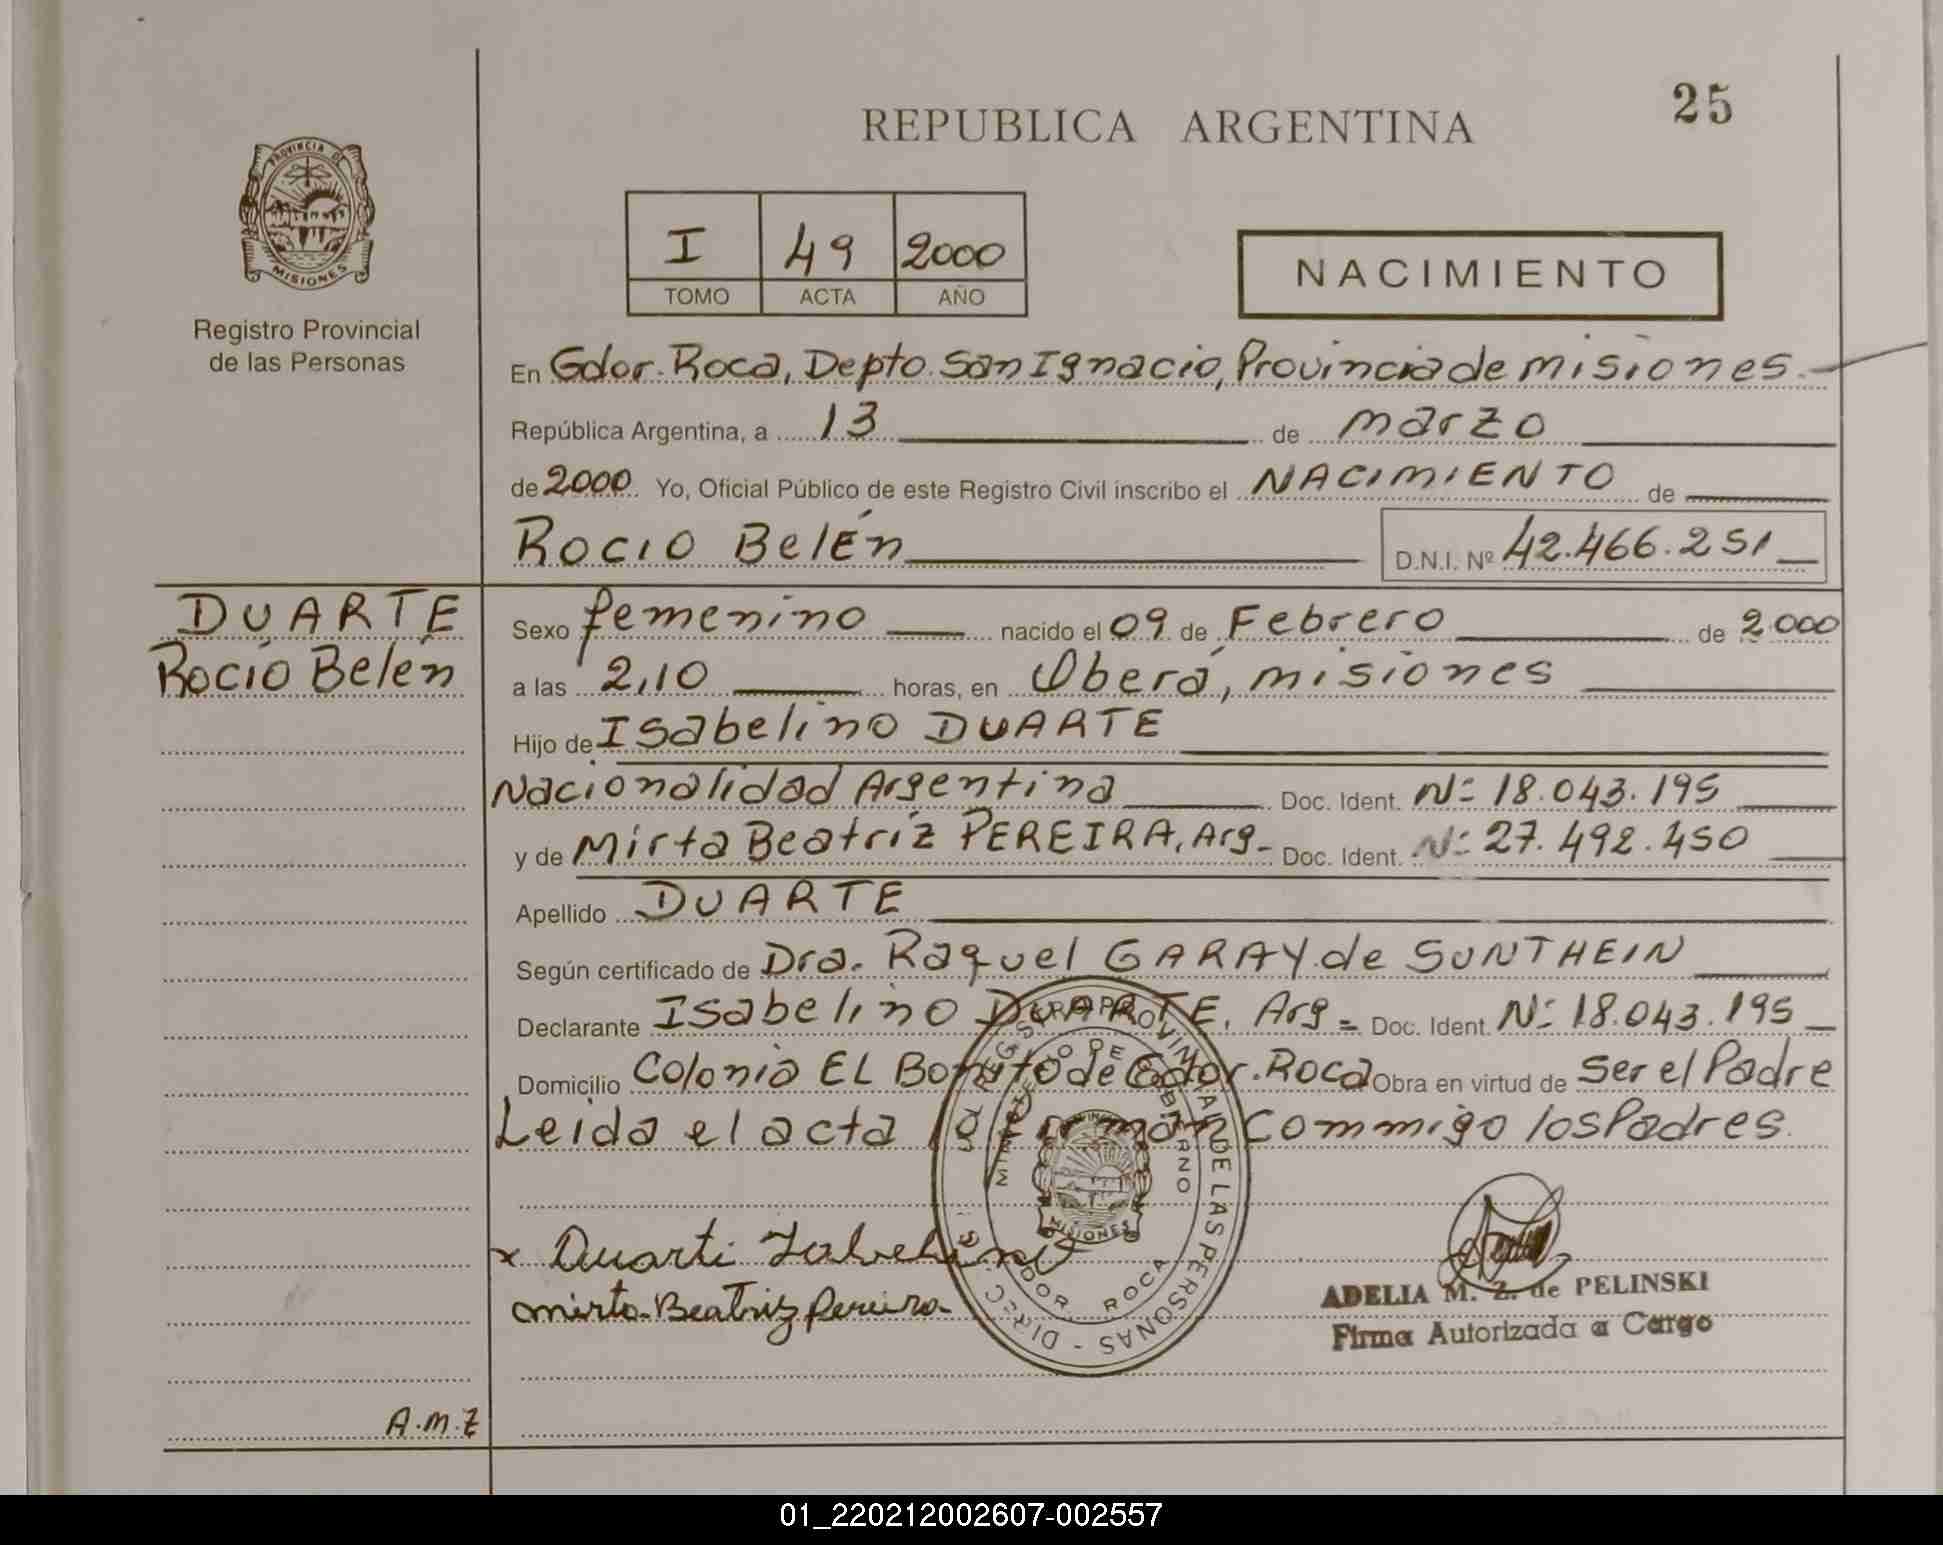 25
REPUBLICA ARGENTINA
PROVINCIA DE
MISIONES
Registro Provincial
de las Personas
I 49 2000
TOMO ACTA AÑO
NACIMIENTO
En Gdor. Roca, Depto. San Ignacio, Provincia de misiones.
República Argentina, a 13 de marzo
de 2000 Yo, Oficial Público de este Registro Civil inscribo el NACIMIENTO de
Rocio Belén D.N.I. Nº 42.466.251
DUARTE
Rocio Belén
Sexo femenino nacido el 09 de Febrero de 2000
a las 2,10 horas, en Oberá, misiones
Hijo de Isabelino DUARTE
Nacionalidad Argentina Doc. Ident. Nº 18.043.195
y de Mirta Beatriz PEREIRA, Arg. Doc. Ident. Nº 27.492.450
Apellido DUARTE
Según certificado de Dra. Raquel GARAY de SUNTHEIN
Declarante Isabelino DUARTE, Arg. Doc. Ident. Nº 18.043.195
Domicilio Colonia EL Bonito de Gdor. Roca Obra en virtud de Ser el Padre
Leida el acta la firman Commigo los Padres.
MISIONES
x Duarti
mirta Beatriz Pereira
ADELIA M. Z. de PELINSKI
Firma Autorizada a Cargo
A.M.Z
01_220212002607-002557